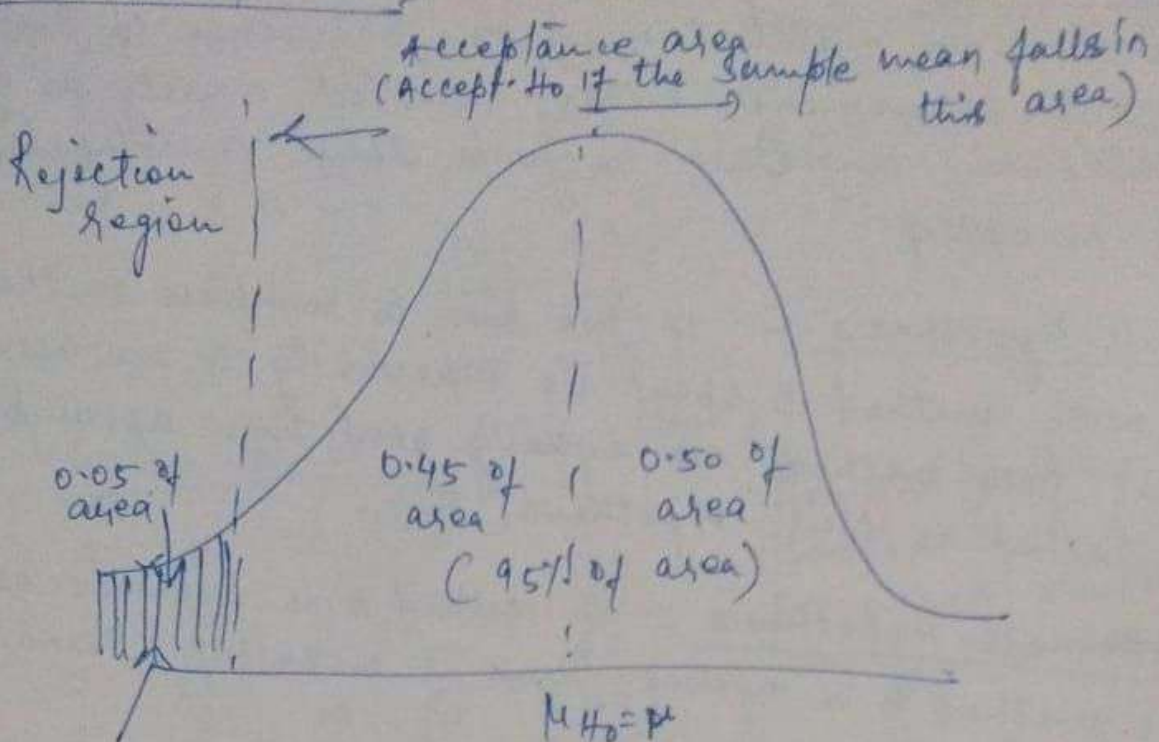 Acceptance area
(Accept H₀ if the sample mean falls in
this area)
Rejection
region
0.05 of
area
0.45 of
area
0.50 of
area
(95% of area)
μ H₀ = μ